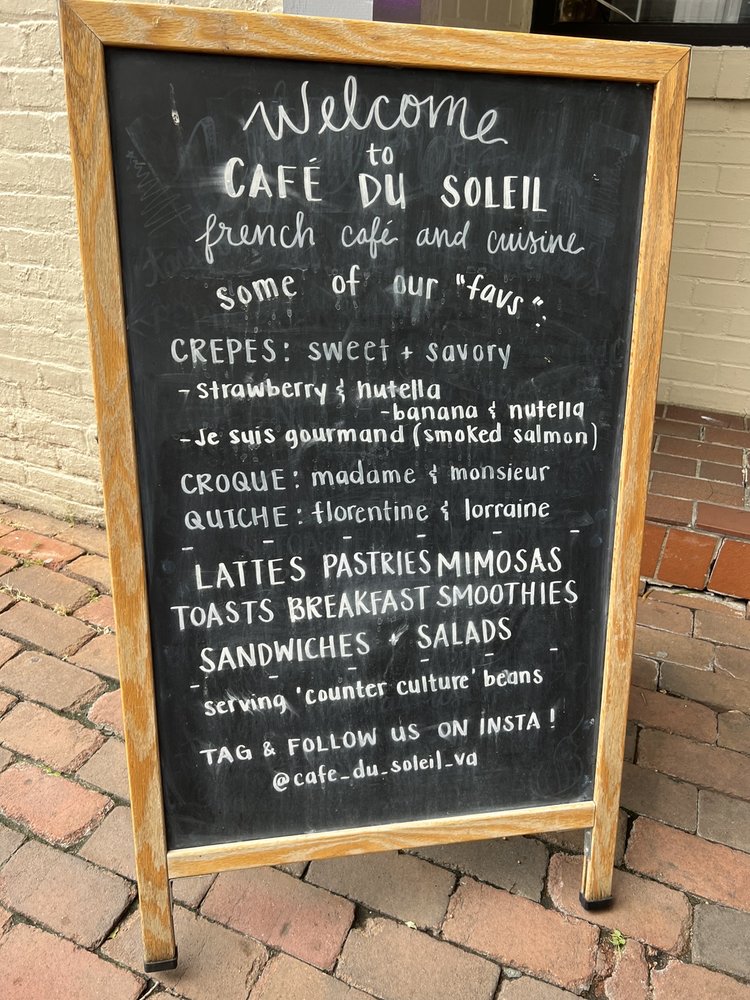 Welcome
to
CAFÉ DU SOLEIL
french café and cuisine
some of our "favs":
CREPES: sweet + savory
- strawberry & nutella
- banana & nutella
- Je suis gourmand (smoked salmon)
CROQUE: madame & monsieur
QUICHE: florentine & lorraine
LATTES PASTRIES MIMOSAS
TOASTS BREAKFAST SMOOTHIES
SANDWICHES SALADS
serving 'counter culture' beans
TAG & FOLLOW US ON INSTA!
@cafe_du_soleil_va